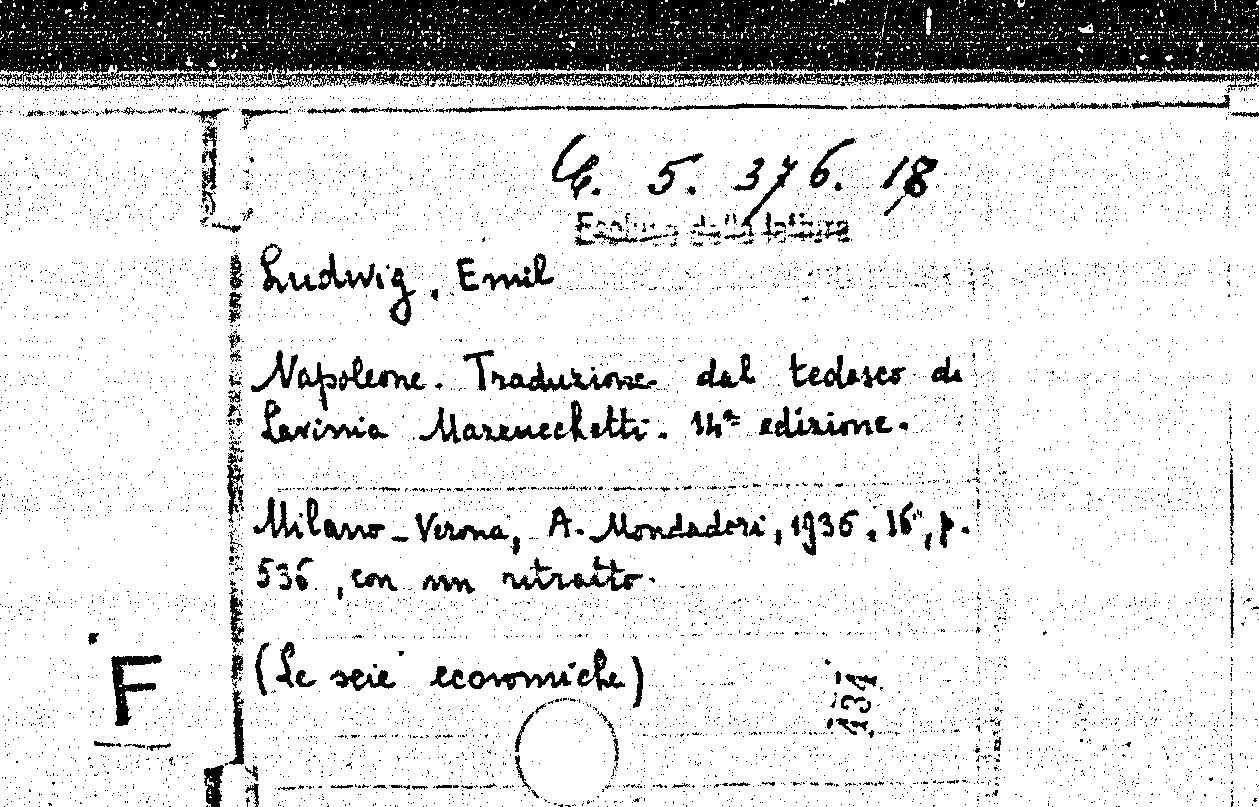 C. 5. 376. 18
Escluso dalla lettura
Ludwig, Emil
Napoleone. Traduzione dal tedesco di
Lavinia Mazzucchetti. 14ª edizione.
Milano - Verona, A. Mondadori, 1936, 16°, p.
536, con un ritratto.
(Le scie economiche)
F
134